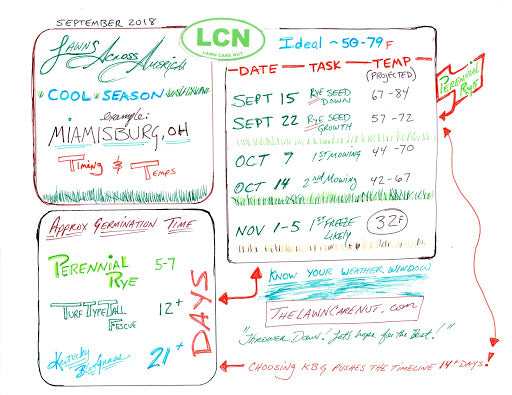 SEPTEMBER 2018
LCN
LAWN CARE NUT
LAWNS ACROSS AMERICA
COOL SEASON
example:
MIAMISBURG, OH
Timing & Temps
Ideal ~ 50-79F
DATE TASK TEMP
(PROJECTED)
SEPT 15 RYE SEED DOWN 67-84
SEPT 22 RYE SEED GROWTH 57-72
OCT 7 1ST MOWING 44-70
OCT 14 2nd MOWING 42-67
NOV 1-5 1ST FREEZE Likely 32F
PERENNIAL RYE
APPROX GERMINATION TIME
PERENNIAL RYE 5-7
TURF TYPE TALL FESCUE 12+
Kentucky Bluegrass 21+
DAYS
KNOW YOUR WEATHER WINDOW
THELAWNCARENUT.com
"THROWER DOWN! Let's hope for the Best!"
CHOOSING KBG PUSHES THE TIMELINE 14+ DAYS!